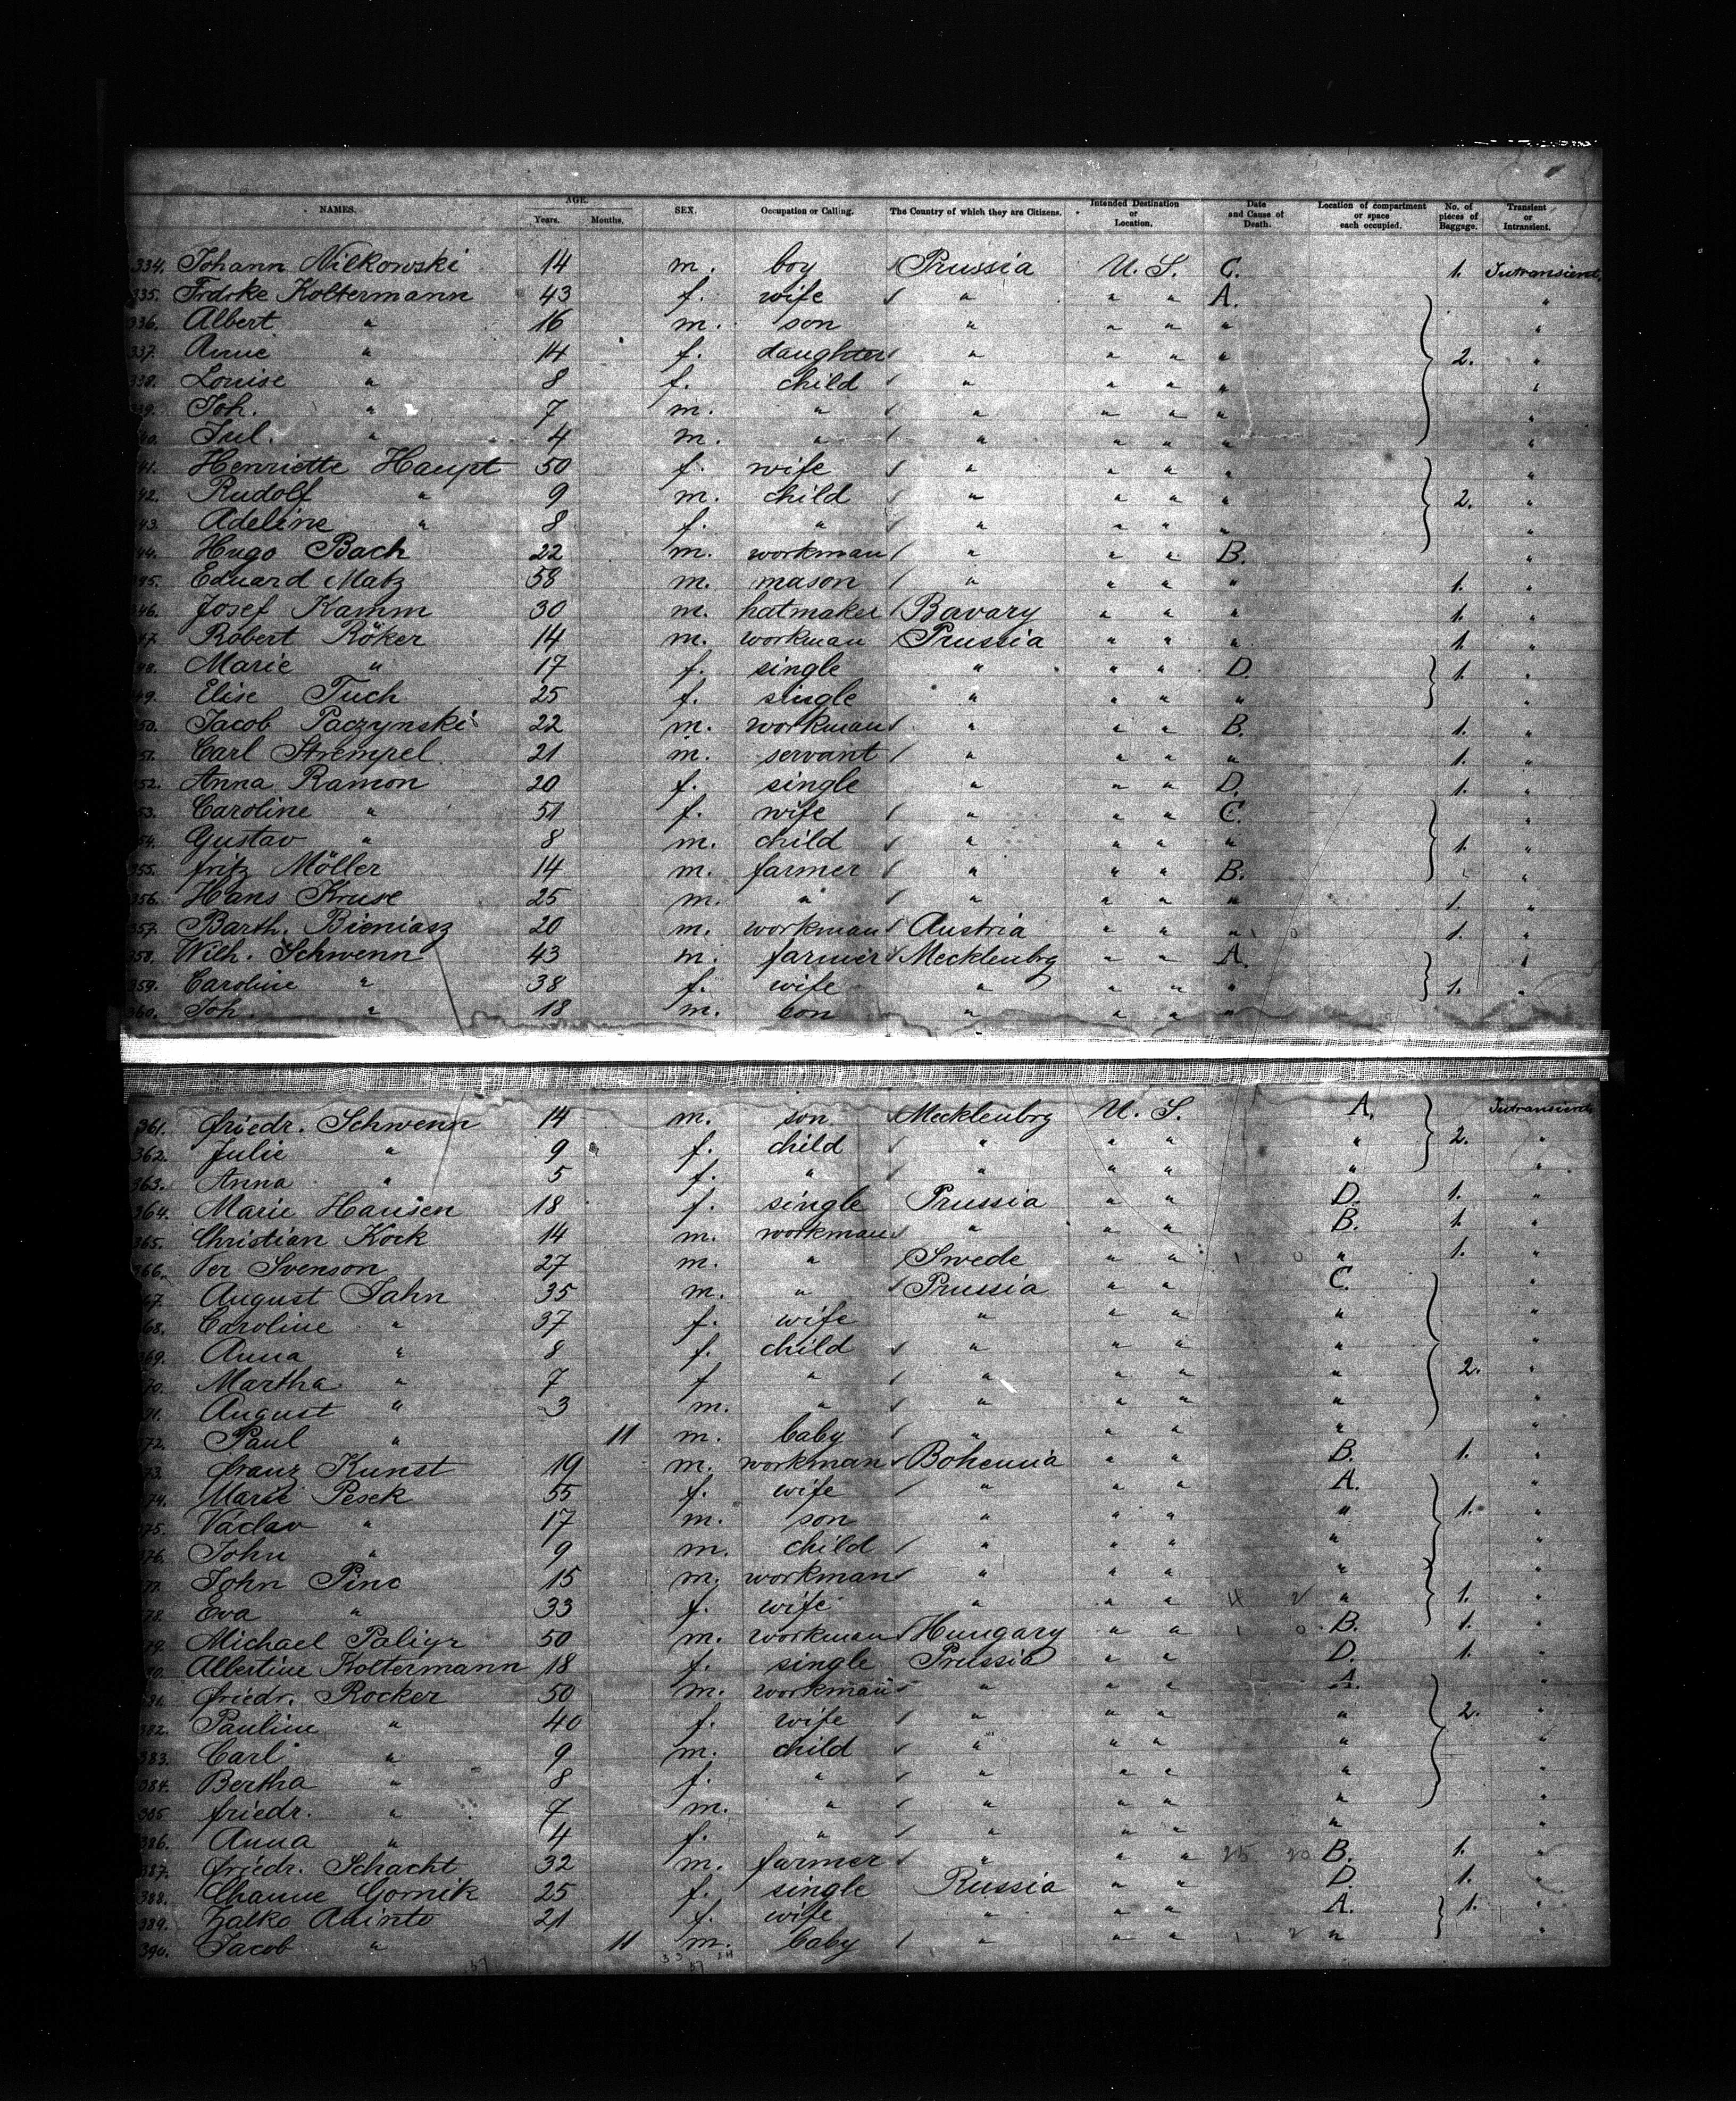 NAMES. AGE. Years. Months. SEX. Occupation or Calling. The Country of which they are Citizens. Intended Destination or Location. Date and Cause of Death. Location of compartment or space each occupied. No. of pieces of Baggage. Transient or Intransient.
334. Johann Nilkowski 14 m. boy Prussia U. S. C. 1. Intransient
335. Frdrke Koltermann 43 f. wife " " " A. "
336. Albert " 16 m. son " " " " "
337. Annie " 14 f. daughter " " " " 2. "
338. Louise " 8 f. child " " " " "
339. Joh. " 7 m. " " " " " "
340. Jul. " 4 m. " " " " " "
341. Henriette Haupt 50 f. wife " " " " "
342. Rudolf " 9 m. child " " " " 2. "
343. Adeline " 8 f. " " " " " "
344. Hugo Bach 22 m. workman " " " B. "
345. Eduard Matz 58 m. mason " " " " 1. "
346. Josef Kamm 30 m. hatmaker Bavary " " " 1. "
347. Robert Röker 14 m. workman Prussia " " " 1. "
348. Marie " 17 f. single " " " D. 1. "
349. Elise Tuch 25 f. single " " " " "
350. Jacob Paczynski 22 m. workman " " " B. 1. "
351. Carl Strempel 21 m. servant " " " " 1. "
352. Anna Ramon 20 f. single " " " D. 1. "
353. Caroline " 51 f. wife " " " C. "
354. Gustav " 8 m. child " " " " 1. "
355. fritz Möller 14 m. farmer " " " B. "
356. Hans Kruse 25 m. " " " " " 1. "
357. Barth. Bieniasz 20 m. workman Austria " " " 1. "
358. Wilh. Schwenn 43 m. farmer Mecklenbrg " " A. "
359. Caroline " 38 f. wife " " " " 1. "
360. Joh. " 18 m. son " " " "
361. friedr. Schwenn 14 m. son Mecklenbrg U. S. A. Intransient
362. Julie " 9 f. child " " " " 2. "
363. Anna " 5 f. " " " " " "
364. Marie Hansen 18 f. single Prussia " " D. 1. "
365. Christian Kock 14 m. workman " " " B. 1. "
366. Per Svenson 27 m. " Swede " " 1 0 " 1. "
367. August Jahn 35 m. " Prussia " " C.
368. Caroline " 37 f. wife " " " " "
369. Anna " 8 f. child " " " " "
370. Martha " 7 f " " " " " 2. "
371. August " 3 m. " " " " " "
372. Paul " 11 m. baby " " " " "
373. franz Kunst 19 m. workman Bohemia " " B. 1. "
374. Marie Pesek 55 f. wife " " " A. "
375. Václav " 17 m. son " " " " 1. "
376. John " 9 m. child " " " " "
377. John Pinc 15 m. workman " " " " "
378. Eva " 33 f. wife " " " 4 2 " 1. "
379. Michael Paligr 50 m. workman Hungary " " 1 0 B. 1. "
380. Albertine Koltermann 18 f. single Prussia " " D. 1. "
381. friedr. Rocker 50 m. workman " " " A. "
382. Pauline " 40 f. wife " " " " 2. "
383. Carl " 9 m. child " " " " "
384. Bertha " 8 f. " " " " " "
385 friedr. " 7 m. " " " " " "
386. Anna " 4 f. " " " " " "
387. friedr. Schacht 32 m. farmer " " " 25 20 B. 1. "
388. Channe Gornik 25 f. single Russia " " D. 1. "
389. Zalko Adinto 21 f. wife " " " A. 1. "
390. Jacob " 11 m. baby " " " 1 2 " "
57 33 24
57